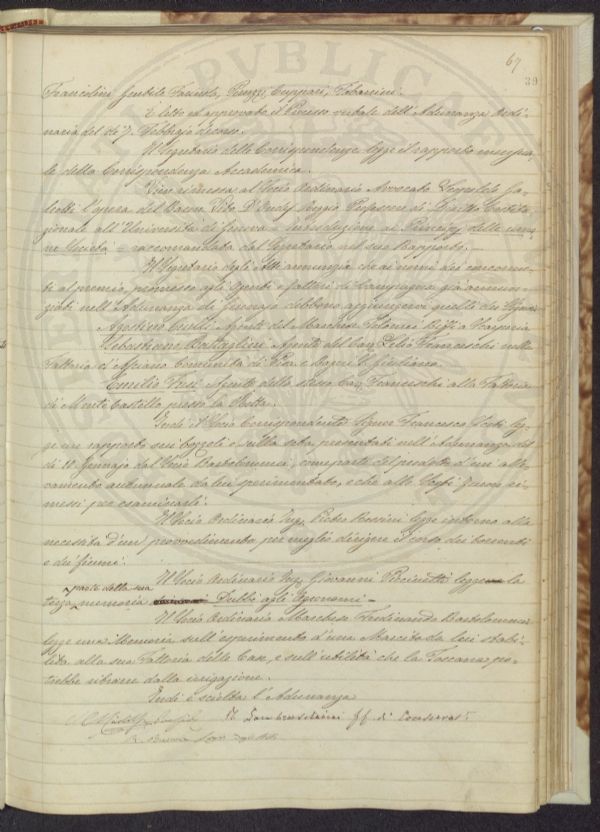 67
39
Francolini, Gentile Farinola, Peruzzi, Cuppari, Tabarrini.
È letto ed approvato il Processo verbale dell'Adunanza Ordi-
naria del dì 7. Febbrajo decorso.
Il Segretario delle Corrispondenze legge il rapporto mensua-
le della Corrispondenza Accademica.
Vien rimessa al Socio Ordinario Avvocato Leopoldo Ga-
leotti l'opera del Baron Vito D'Ondes Reggio Professore di Diritto Costitu-
zionale all'Università di Genova - Introduzione ai Principj delle uma-
ne Società - raccomandata dal Segretario nel suo Rapporto. -
Il Segretario degli Atti annunzia che ai nomi dei concorren-
ti al premio, promesso agli Agenti e fattori di Campagna già annun-
ziati nell'Adunanza di Gennajo debbono aggiungersi quelli dei Signori
Agostino Agente del Marchese Scarperia
Sebastiano Battaglini Agente del Cav. Lelio Franceschi nella
Fattoria d' Comunità di Pisa e Bagni S. Giuliano.
Emilio Agente dello stesso Cav. Franceschi alla Fattoria
di Monte Castello presso la Rotta.
Indi il Socio Corrispondente Signor Francesco leg-
ge un rapporto sui bozzoli e sulla seta, presentati nell'Adunanza del
dì 10 Gennajo dal Socio Bartolommei, come parte del prodotto d'un alle-
vamento autunnale da lui sperimentato, e che allo furon ri-
messi per esaminarli.
Il Socio Ordinario Ing. Pietro Rossini legge intorno alla
necessità d'un provvedimento per meglio dirigere il corso dei torrenti
e dei fiumi.
Il Socio Ordinario Ing. Giovanni legge la
parte della sua
terza memoria Dubbi agli Agronomi -
Il Socio Ordinario Marchese Ferdinando Bartolommei
legge una Memoria sull'esperimento d'una Marcita da lui stabi-
lita alla sua Fattoria delle Case, e sull'utilità che la Toscana po-
trebbe ritrarre dalla irrigazione.
Indi è sciolta l'Adunanza
ff. di Conservat.